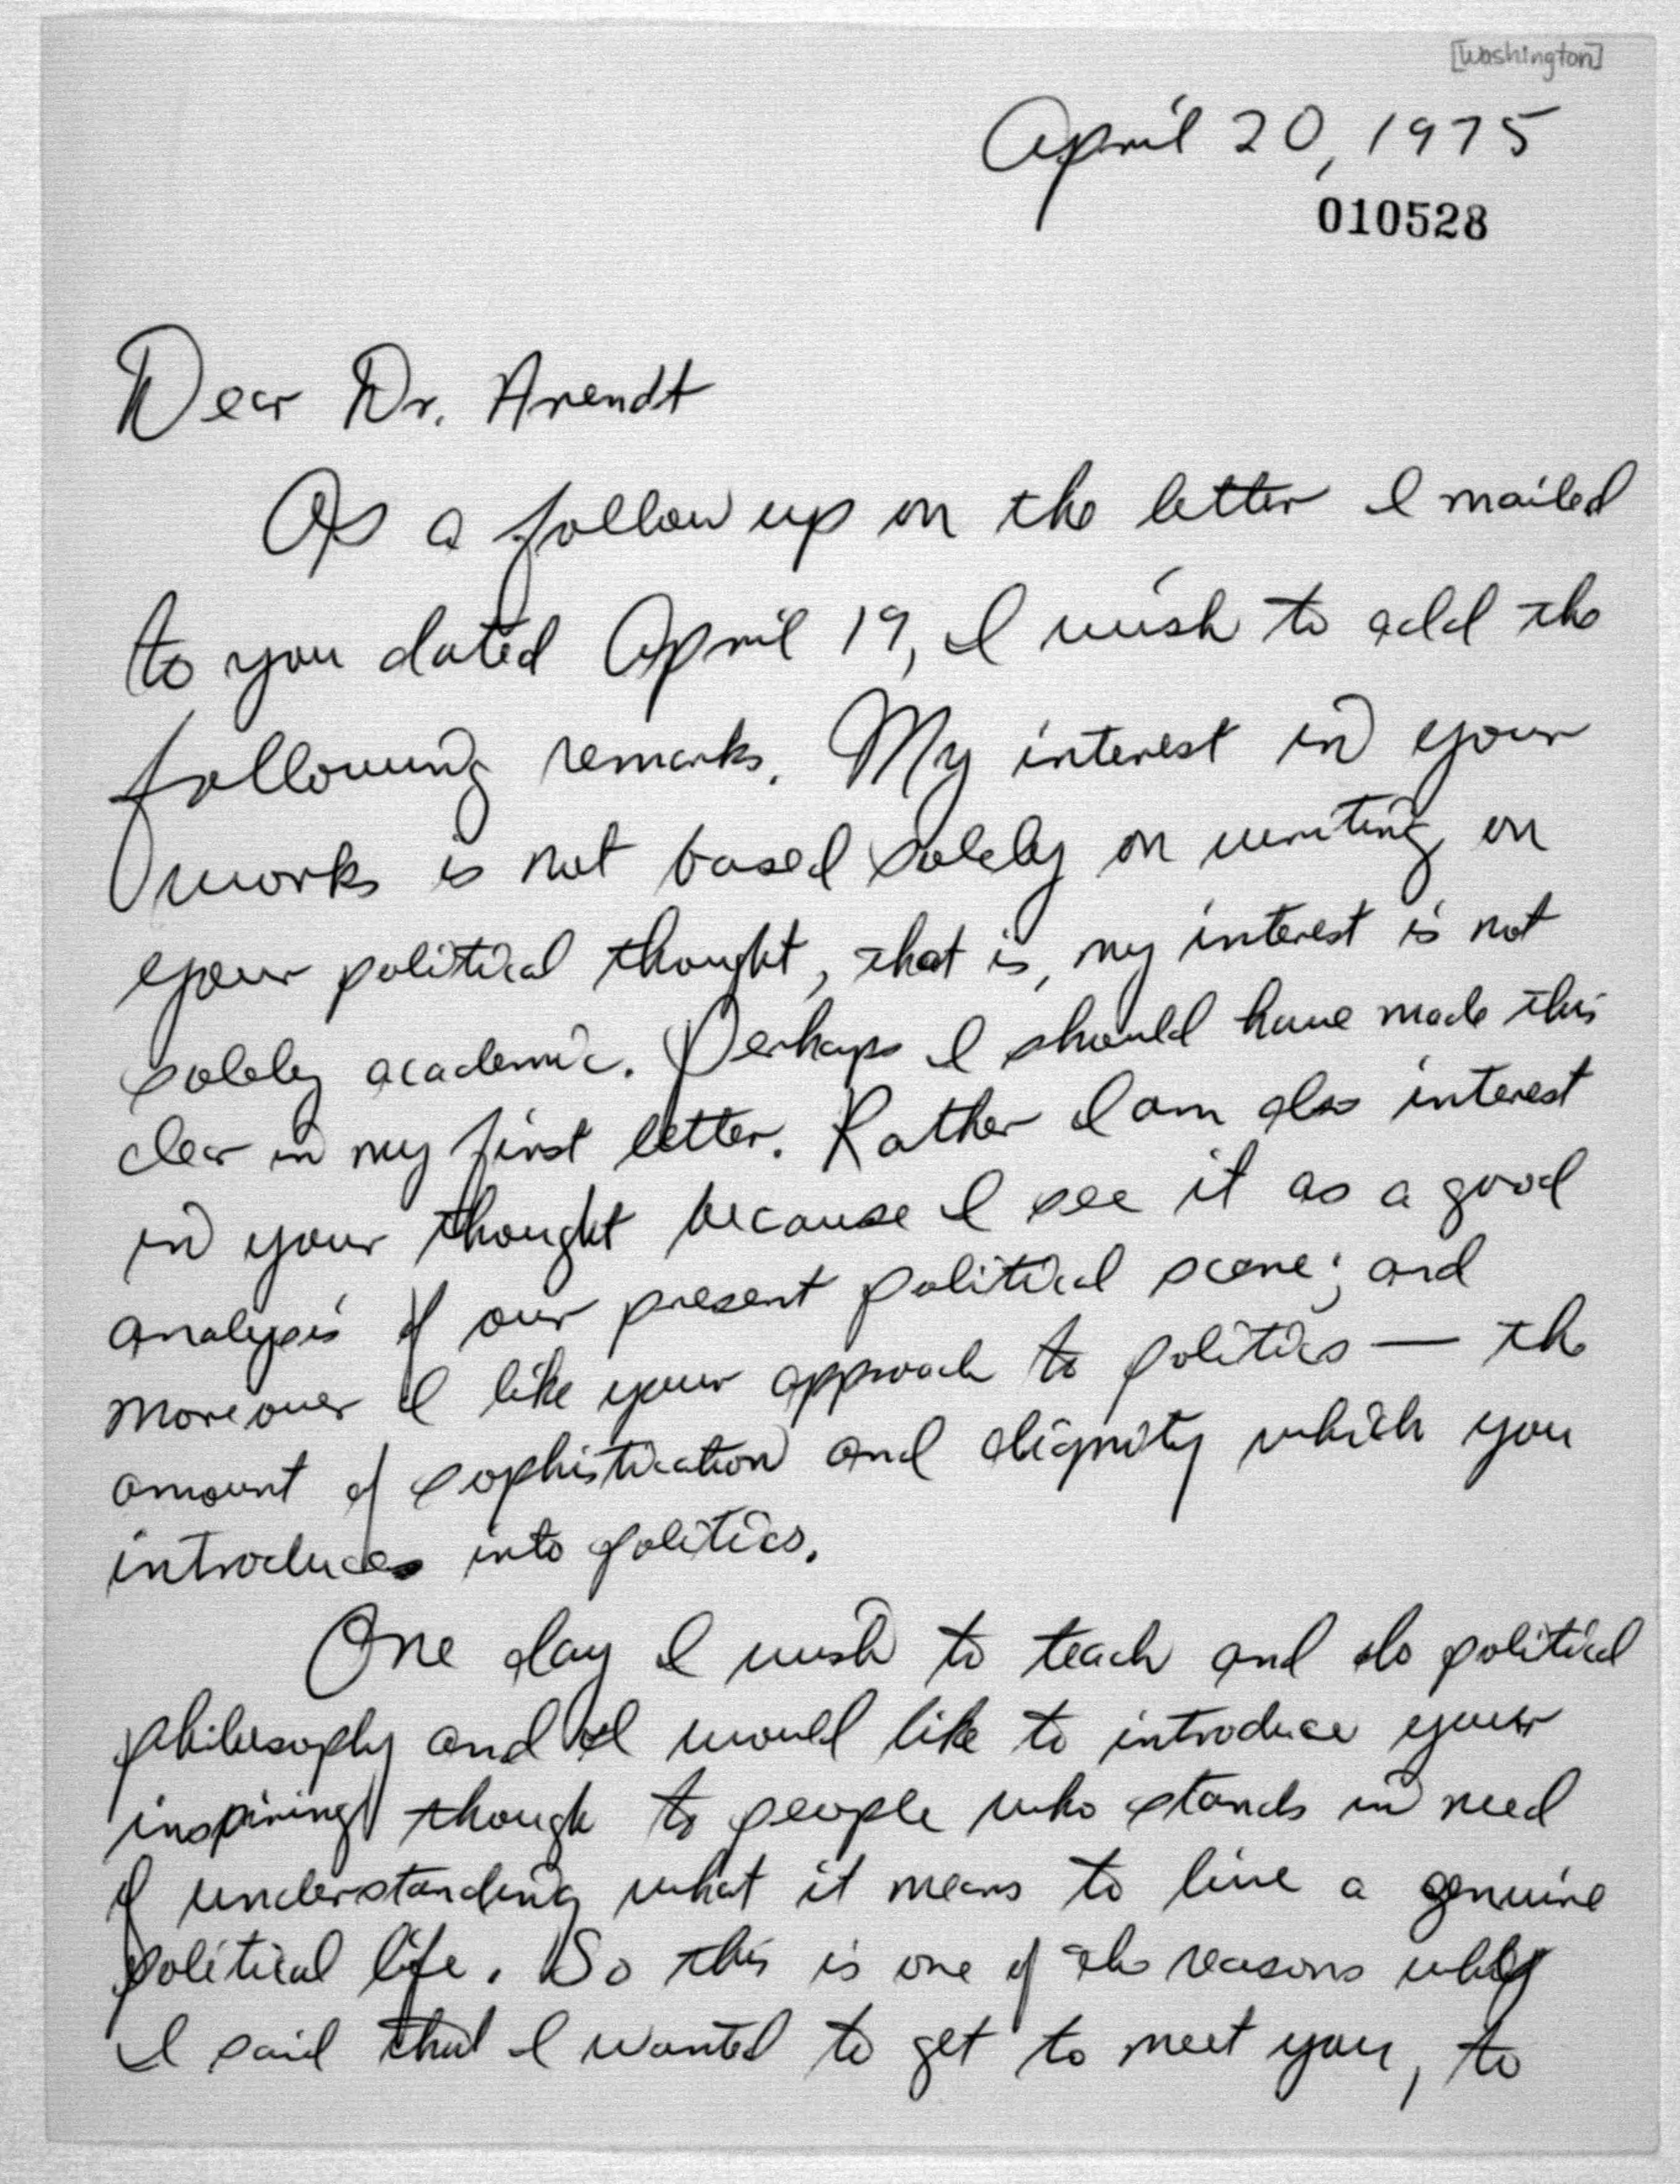 [Washington]
April 20, 1975
010528
Dear Dr. Arendt
As a follow up on the letter I mailed
to you dated April 19, I wish to add the
following remarks. My interest in your
works is not based solely on writing on
your political thought, that is, my interest is not
solely academic. Perhaps I should have made this
clear in my first letter. Rather I am also interest
in your thought because I see it as a good
analysis of our present political scene; and
moreover I like your approach to politics — the
amount of sophistication and dignity which you
introduces into politics.
One day I wish to teach and do political
philosophy and I would like to introduce your
inspiring though to people who stands in need
of understanding what it means to live a genuine
political life. So this is one of the reasons why
I said that I wanted to get to meet you, to